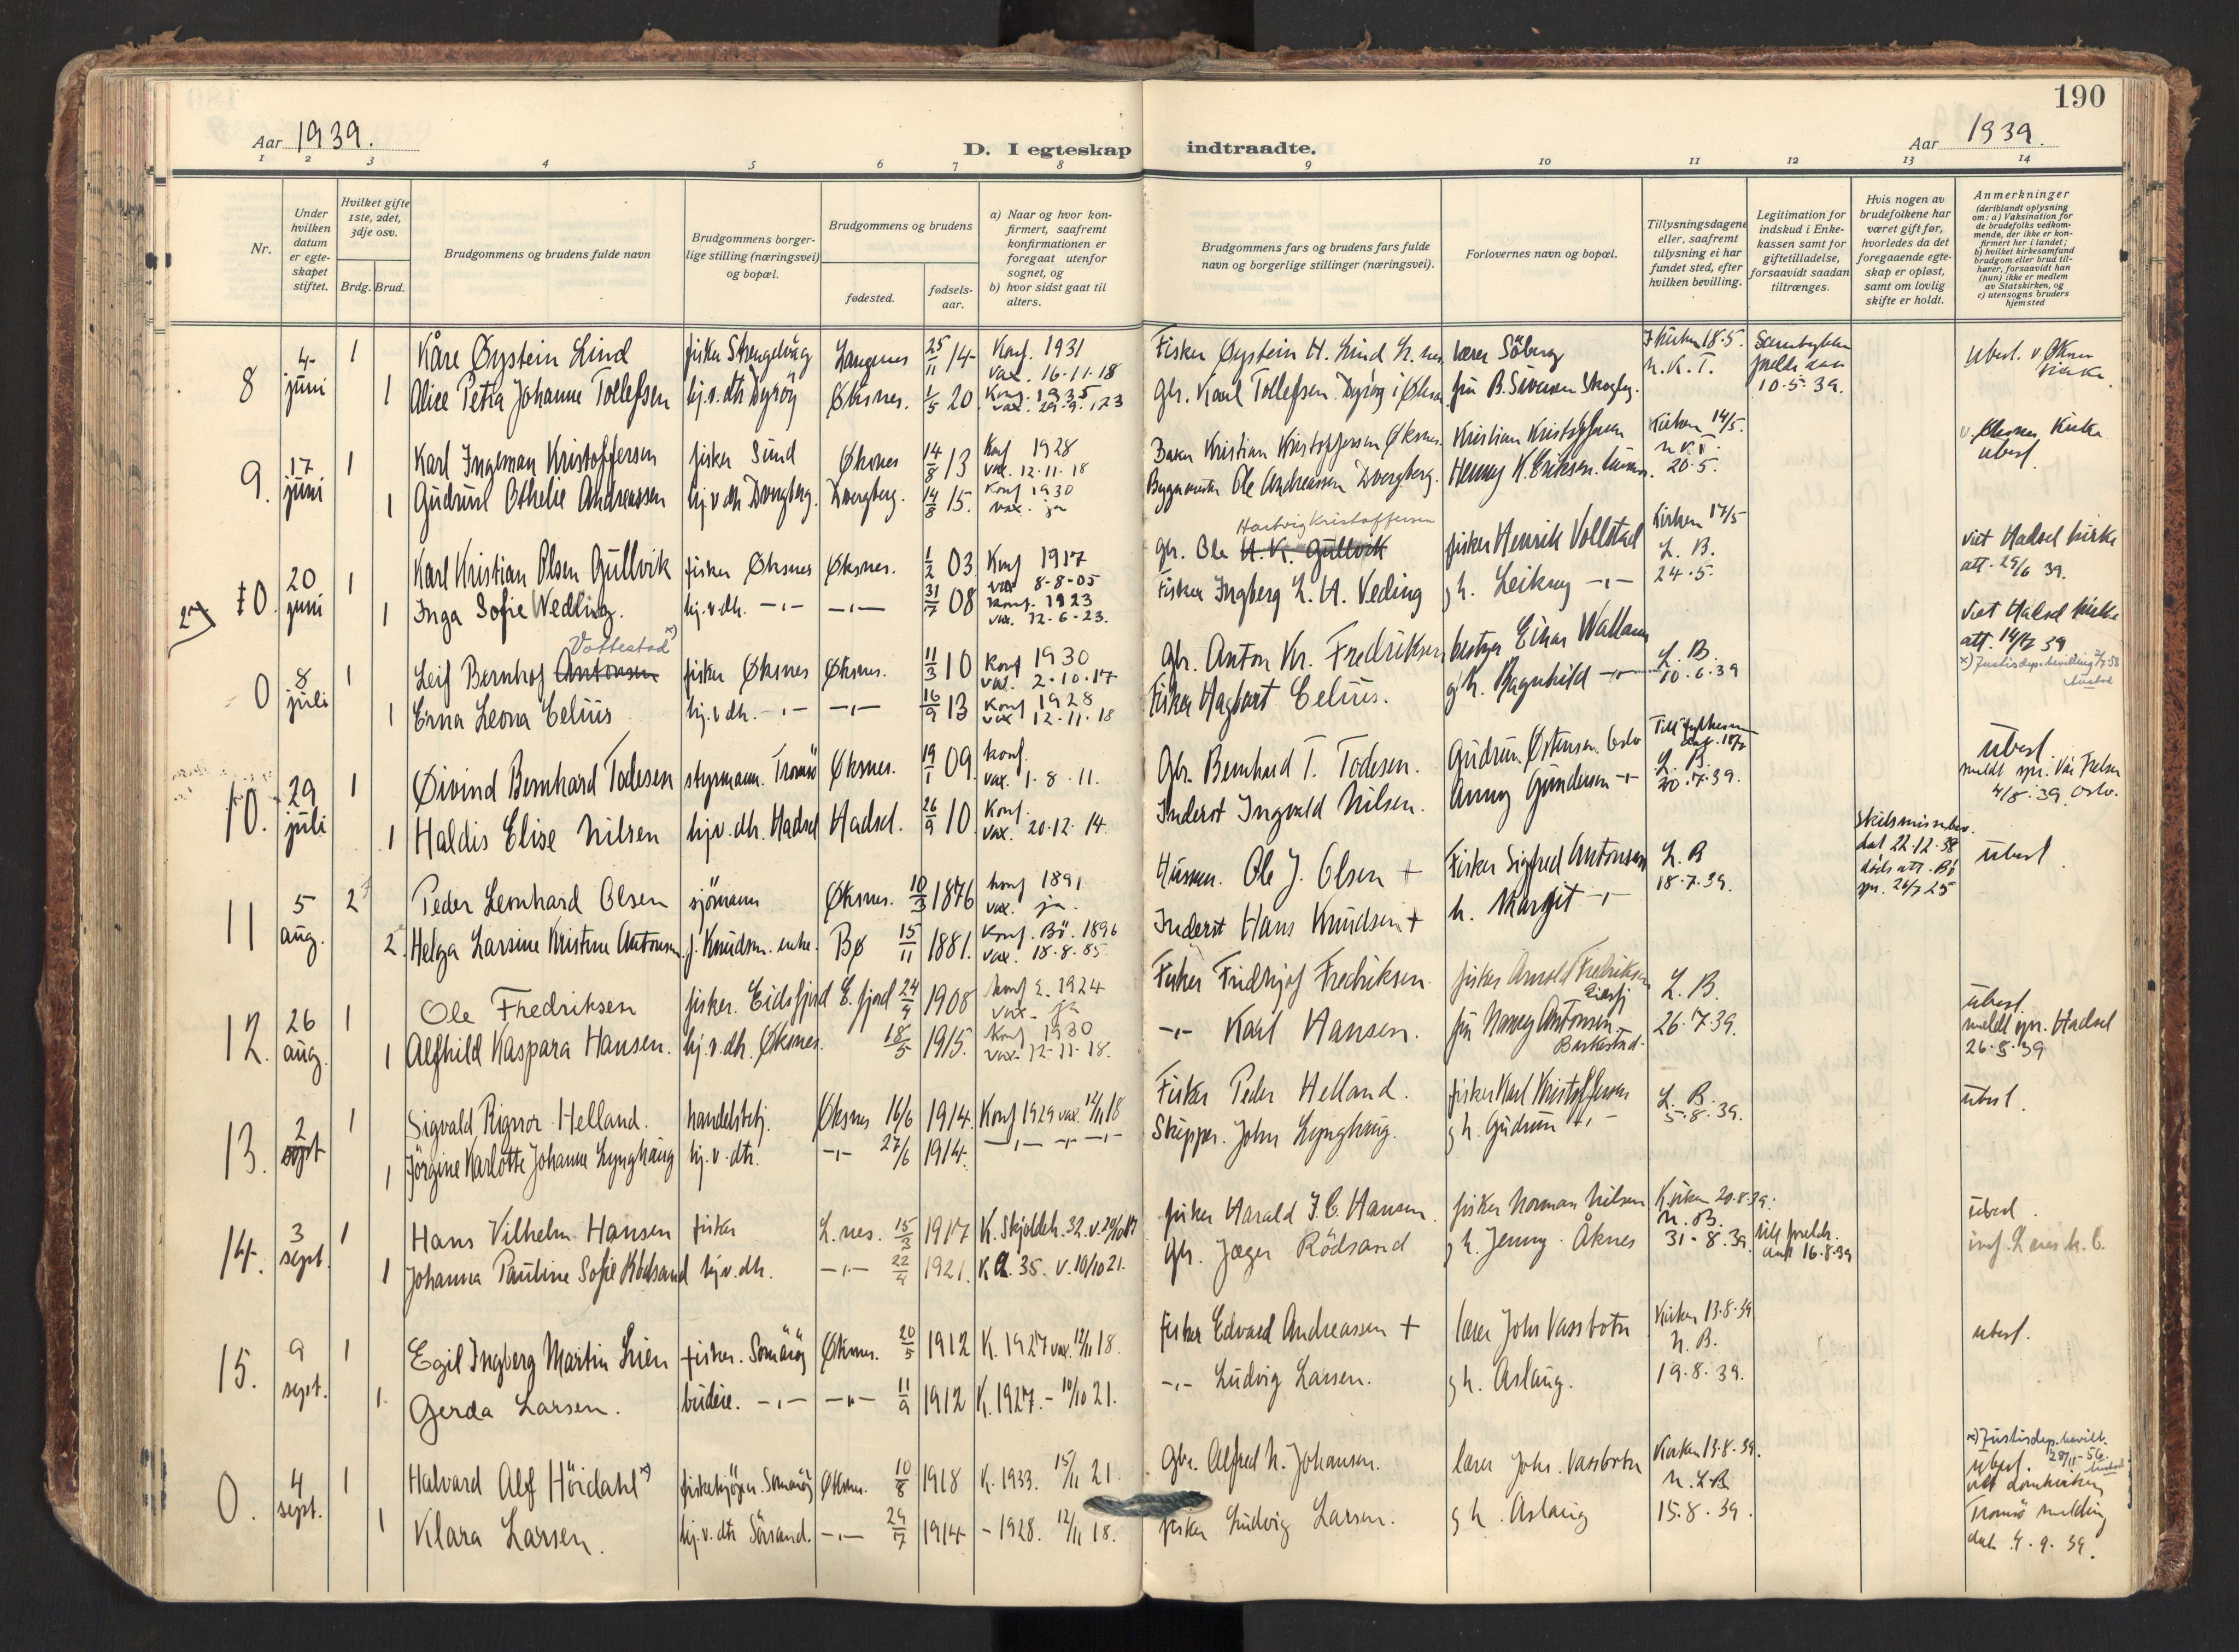 190
Aar 1939.
D. I egteskap indtraadte.
Aar 1939.
1 2 3 4 5 6 7 8 9 10 11 12 13 14
Nr.
Under hvilken datum er egteskapet stiftet.
Hvilket gifte 1ste, 2det, 3dje osv.
Brdg. Brud.
Brudgommens og brudens fulde navn
Brudgommens borgerlige stilling (næringsvei) og bopæl.
Brudgommens og brudens
fødested.
fødselsaar.
a) Naar og hvor konfirmert, saafremt konfirmationen er foregaat utenfor sognet, og
b) hvor sidst gaat til alters.
Brudgommens fars og brudens fars fulde navn og borgerlige stillinger (næringsvei).
Forlovernes navn og bopæl.
Tillysningsdagene eller, saafremt tillysning ei har fundet sted, efter hvilken bevilling.
Legitimation for indskud i Enkekassen samt for giftetilladelse, forsaavidt saadan tiltrænges.
Hvis nogen av brudefolkene har været gift før, hvorledes da det foregaaende egteskap er opløst, samt om lovlig skifte er holdt.
Anmerkninger (deriblandt oplysning om: a) Vaksination for de brudefolks vedkommende, der ikke er konfirmert her i landet; b) hvilket kirkesamfund brudgom eller brud tilhører, forsaavidt han (hun) ikke er medlem av Statskirken, og c) utensogns bruders hjemsted
8 4 juni 1 Kåre Øystein Lind fisker Strengelvåg Langenes 25/11 14 Konf. 1931 vax. 16.11.18 Fisker Øystein H. Lind L. nes lærer Söberg 18.5.
1 Alice Petra Johanne Tollefsen hj.v.dtr Dyröy Øksnes. 1/5 20 Konf. 1935 vax. 29.9.23 gbr. Karl Tollefsen Dyröy i Øksnes fru B. Sivertsen 10.5.39.
9. 17 juni 1 Karl Ingeman Kristoffersen fisker Sund Øksnes 14/8 13 Konf 1928 vax. 12.11.18 Baker Kristian Kristoffersen Øksnes. Kristian Kristoffersen Kirken 14/5. v. Øksnes Kirke
1 Gudrun Othelie Andreassen hj.v.dtr Dvergberg. Dvergberg. 14/8 15. Konf 1930 vax. ja Byggmester Ole Andreassen Dvergberg. Henny K. Eriksen 20.5. ubesl
10. 20 juni 1 Karl Kristian Olsen Gullvik fisker Øksnes Øksnes. 1/2 03 Konf 1917 vax 8-8-05 gbr. Ole H. K. Gullvik Hartvig Kristoffersen fisker Henrik Vollstad Kirken 17/5 L. B. viet Hadsel kirke
1 Inga Sofie Wedling. hj.v.dtr. -"- -"- 31/7 08 Konf. 1923 vax. 12.6.23. Fisker Ingberg L. A. Veding g h. Leikny -"- 24.5. att. 29/6 39.
0 8 juli 1 Leif Bernhof Antonsen Vottestad x) fisker Øksnes Øksnes. 11/3 10 Konf 1930 vax. 2.10.17 gbr. Anton Kr. Fredriksen bestyrer Einar Wallann L. B. viet Hadsel kirke att. 14/7 39
1 Erna Leona Celius hj.v.dtr. -"- -"- 16/9 13 Konf 1928 vax 12.11.18 Fisker Hagbart Celius. g h. Ragnhild -"- 10.6.39 x) Justisdep. bevilling
10. 29 juli 1 Øivind Bernhard Todesen styrmann. Tromsö Øksnes. 19/1 09. konf. vax. 1.8.11. Gbr. Bernhard T. Todesen. Gudrun Østensen Oslo L. B. ubesl.
1 Haldis Elise Nilsen hj.v.dtr. Hadsel Hadsel. 26/9 10. Konf. vax. 20.12.14. Inderst Ingvald Nilsen. Anny Gundersen -"- 20.7.39. 4/8.39. Oslo.
11 5 aug. 2 Peder Leonhard Olsen sjömann Øksnes. 10/3 1876 konf 1891 vax. ja. Husmn. Ole J. Olsen + Fisker Sigfred Antonsen L. B Skilsmissebev. dat 22.12.38 ubesl.
2 Helga Larsine Kristine Antonsen f. Knudsen. enke. Bø 15/11 1881. Konf. Bö. 1896 vax. 18.8.85. Inderst Hans Knudsen + h. Margit -"- 18.7.39. dödsatt. Bö spr. 24/7 25
12. 26 aug. 1 Ole Fredriksen fisker. Eidsfjord E. fjord 24/4 1908 konf E. 1924 vax. ja Fisker Fridtjof Fredriksen. fisker Arnold Fredriksen L. B. ubesl.
1 Alfhild Kaspara Hansen. hj.v.dtr. Øksnes. 18/5 1915. Konf 1930 vax. 12.11.18. -"- Karl Hansen. fru Antonsen Barkestad. 26.7.39. meldt spr. Hadsel 26.8.39
13. 2 sept 1 Sigvald Rignor Helland. handelsbetj. Øksnes 16/6 1914. Konf 1929 vax. 12/11 18 Fisker Peder Helland. fisker Karl Kristoffersen L. B. ubesl.
1 Jörgine Karlotte Johanne Lynghaug hj.v.dtr. -"- 27/6 1914. -"- -"- -"- Skipper. John Lynghaug. g h. Gudrun -"- 5.8.39.
14. 3 sept. 1 Hans Vilhelm Hansen fisker L. nes. 15/3 1917 K. Skjoldeh. 32. Fisker Harald J. C. Hansen. fisker Norman Nilsen Kirken 20.8.39. N. B. ubesl.
1 Johanna Pauline Sofie Rödsand hj.v.dtr. -"- 22/4 1921. 35. v. 10/10 21. gbr. Jæger Rödsand g h. Jenny Åknes 31-8.39. 16.8.39
15. 9 sept. 1 Egil Ingberg Martin Lien fisker. Somaröy Øksnes. 20/5 1912 K. 1927 vax. 12/11 18. fisker Edvard Andreassen + lærer Johs Vassbotn Kirken 13.8.39 N. B. ubesl.
1. Gerda Larsen. budeie. -"- -"- 11/9 1912 K. 1927. - 10/10 21. -"- Ludvig Larsen. g h. Aslaug. 19.8.39.
0. 4 sept. 1 Halvard Alf Höidahl x) Somaröy Øksnes. 10/8 1918 K. 1933. 15/11 21. Gbr. Alfred N. Johansen. lærer Johs. Vassbotn Kirken 13.8.39. x) Justisdep. bevill. 28/11-56. ubesl.
1 Klara Larsen. hj.v.dtr Sörsand. -"- 29/7 1914 - 1928. 12/11 18. fisker Ludvig Larsen. g h. Aslaug 15.8.39. att domkirken Tromsö melding dat. 4.9.39.